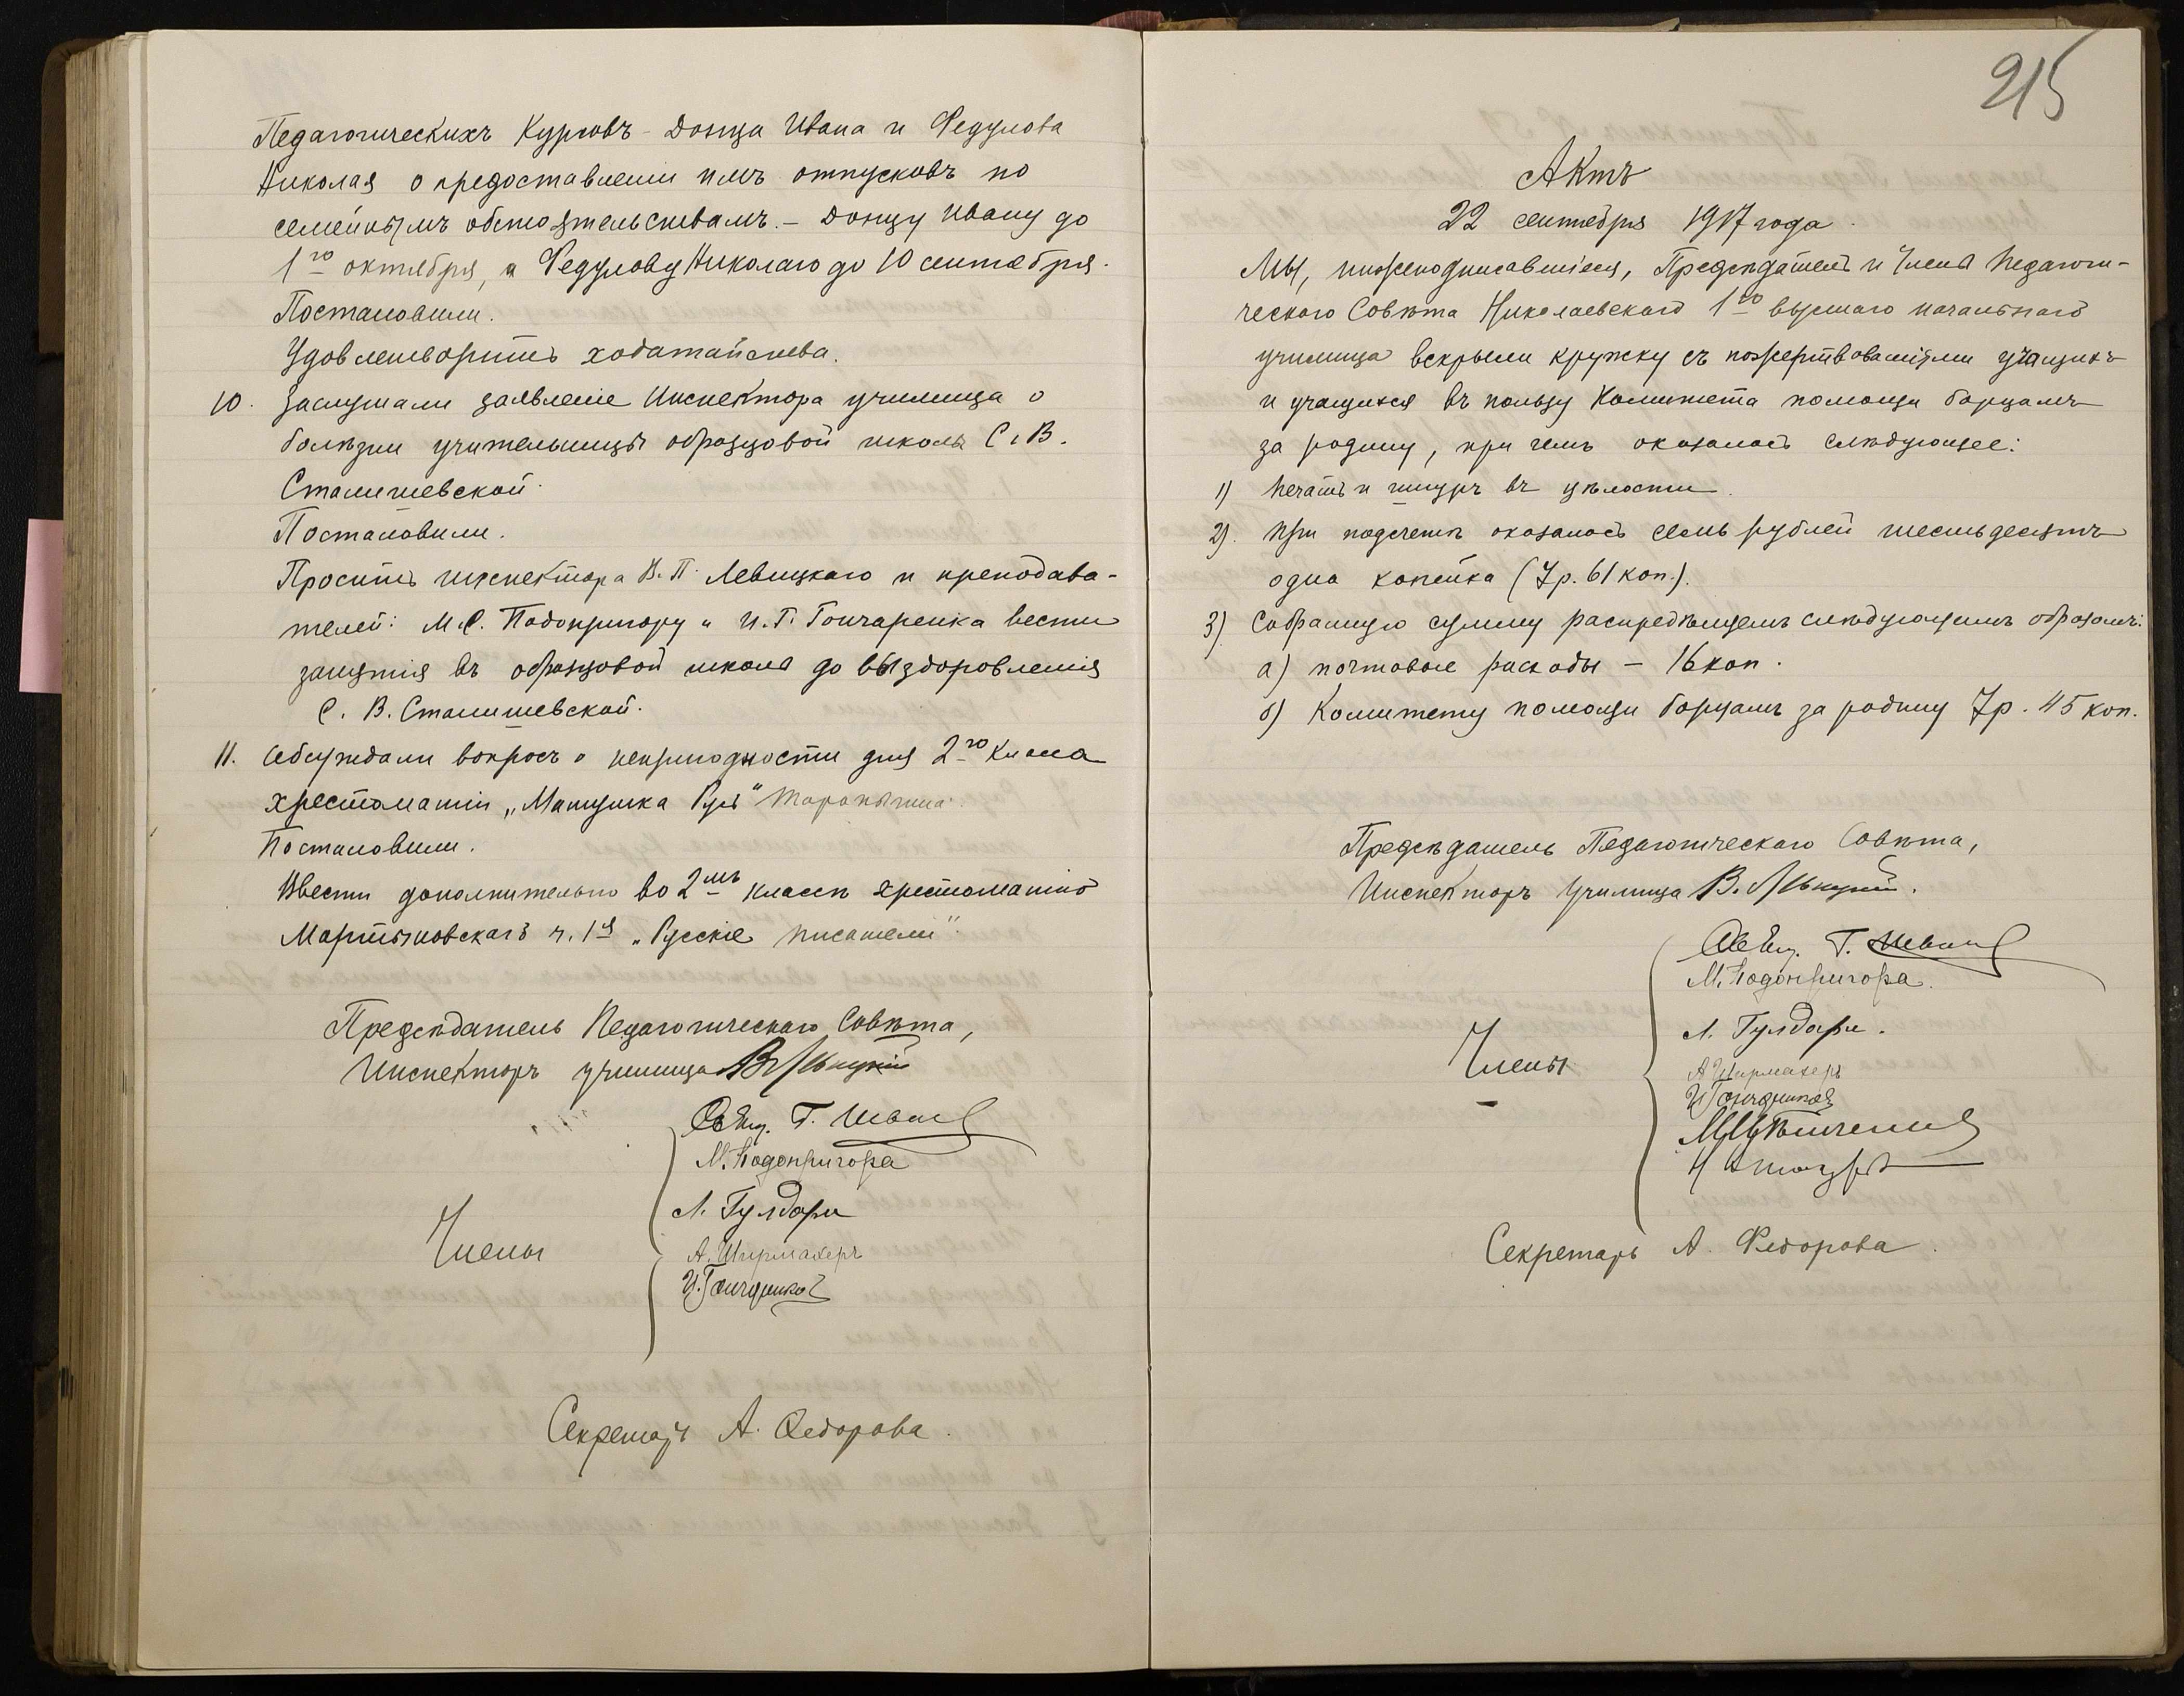 Педагогическихъ Курсовъ – Донца Ивана и Федулова
Николая о предоставленіи имъ отпусковъ по
семейнымъ обстоятельствамъ. – Донцу Ивану до
1го октября, а Федулову Николаю до 10 сентября.
Постановили.
Удовлетворить ходатайства.
10. Заслушали заявленіе Инспектора училища о
болѣзни учительницы образцовой школы С. В.
Станишевской.
Постановили.
Просить инспектора В. П. Левицкаго и препода­ва-
телей: М. С. Подопригору и И. Г. Гончаренка вести
занятія въ образцовой школѣ до выздоровленія
С. В. Станишевской.
11. Обсуждали вопросъ о непригодности для 2го класса
хрестоматіи „Матушка Русь"
Постановили.
Ввести дополнительно во 2мъ классѣ хрестоматію
Мартыновскаго ч. 1я „Русскіе писатели".
Предсѣдатель Педагогическаго Совѣта,
Инспекторъ училища В.
Г.
М. Подопригора
Члены
А. Ширмахеръ
И.
Секретарь А. Федорова.
215
Актъ
22 сентября 1917 года.
Мы, нижеподписавшіеся, Предсѣдатель и Члены Педагоги-
ческаго Совѣта Николаевскаго 1го высшаго начальнаго
училища вскрыли кружку съ пожертвованіями учащихъ
и учащихся въ пользу Комитета помощи борцамъ
за родину, при чемъ оказалось слѣдующее:
1) Печать и шнуръ въ цѣлости.
2) При подсчетѣ оказалось семь рублей шестьдесятъ
одна копейка (7р. 61 коп.).
3) Собранную сумму распредѣляемъ слѣдующимъ образомъ:
а) почтовые расходы – 16 коп.
б) Комитету помощи борцамъ за родину 7р. 45 коп.
Предсѣдатель Педагогическаго Совѣта,
Инспекторъ Училища В.
Г.
М. Подопригора.
Члены
А Ширмахеръ
Секретарь А. Федорова.